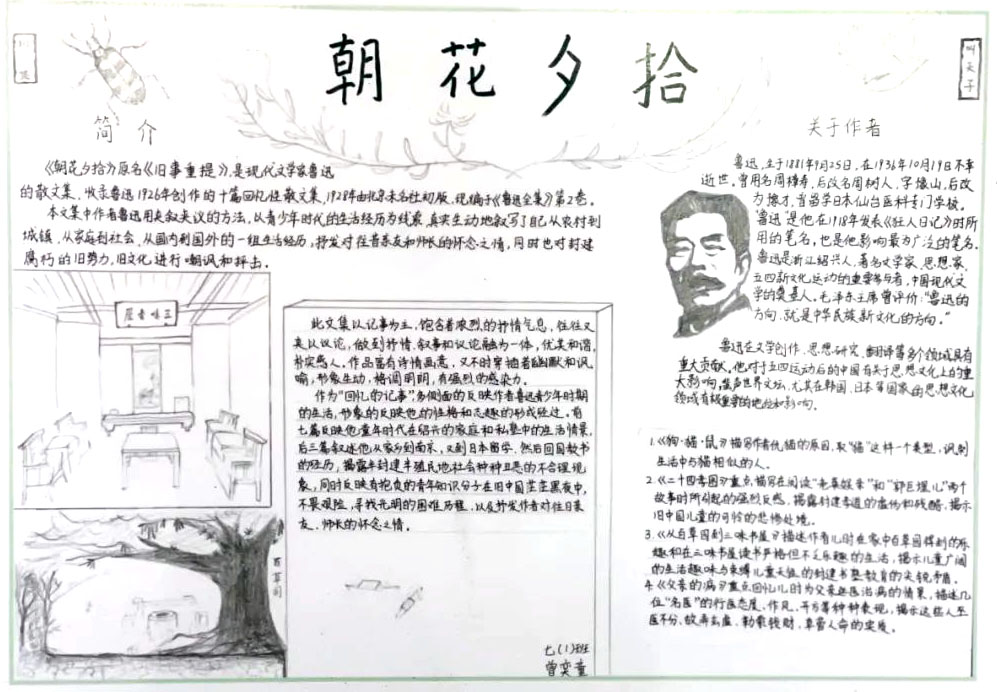 朝花夕拾
叫天子
简介
《朝花夕拾》原名《旧事重提》,是现代文学家鲁迅
的散文集,收录鲁迅1926年创作的十篇回忆性散文集,1928年由北京未名社初版,现编于《鲁迅全集》第2卷。
本文集中作者鲁迅用夹叙夹议的方法,以青少年时代的生活经历为线索,真实生动地叙写了自己从农村到
城镇,从家庭到社会,从国内到国外的一组生活经历,抒发对往昔亲友和师长的怀念之情,同时也对封建
腐朽的旧势力,旧文化进行嘲讽和抨击。
三味书屋
百草园
此文集以记事为主,饱含着浓烈的抒情气息,往往又
夹以议论,做到抒情、叙事和议论融为一体,优美和谐,
朴实感人。作品富有诗情画意,又不时穿插着幽默和讽
喻,形象生动,格调明朗,有强烈的感染力。
作为“回忆的记事”,多侧面的反映作者鲁迅青少年时期
的生活,形象的反映他的性格和志趣的形成经过。前
七篇反映他童年时代在绍兴的家庭和私塾中的生活情景,
后三篇叙述他从家乡到南京,又到日本留学,然后回国教书
的经历,揭露半封建半殖民地社会种种丑恶的不合理现
象,同时反映有抱负的青年知识分子在旧中国茫茫黑夜中,
不畏艰险,寻找光明的困难历程,以及抒发作者对往日亲
友、师长的怀念之情。
七(1)班
曾奕童
关于作者
鲁迅,生于1881年9月25日,在1936年10月19日不幸
逝世。曾用名周樟寿,后改名周树人,字豫山,后改
为豫才,曾留学日本仙台医科专门学校。
“鲁迅”是他在1918年发表《狂人日记》时所
用的笔名,也是他影响最为广泛的笔名。
鲁迅是浙江绍兴人,著名文学家、思想家,
五四新文化运动的重要参与者,中国现代文
学的奠基人。毛泽东主席曾评价:“鲁迅的
方向,就是中华民族新文化的方向。”
鲁迅在文学创作、思想研究、翻译等多个领域具有
重大贡献。他对于五四运动后的中国有关于思想文化上的重
大影响,蜚声世界文坛,尤其在韩国、日本等国家的思想文化
领域有极重要的地位和影响。
1.《狗·猫·鼠》描写作者仇猫的原因,取“猫”这样一个类型,讽刺
生活中与猫相似的人。
2.《二十四孝图》重点描写在阅读“老莱娱亲”和“郭巨埋儿”两个
故事时所引起的强烈反感,揭露封建孝道的虚伪和残酷,揭示
旧中国儿童的可怜的悲惨处境。
3.《从百草园到三味书屋》描述作者儿时在家中百草园得到的乐
趣和在三味书屋读书严格但不乏乐趣的生活,揭示儿童广阔
的生活趣味与束缚儿童天性的封建书塾教育的尖锐矛盾。
4.《父亲的病》重点回忆儿时为父亲延医治病的情景,描述几
位“名医”的行医态度、作风、开方等种种表现,揭示这些人巫
医不分、故弄玄虚、勒索钱财、草菅人命的实质。